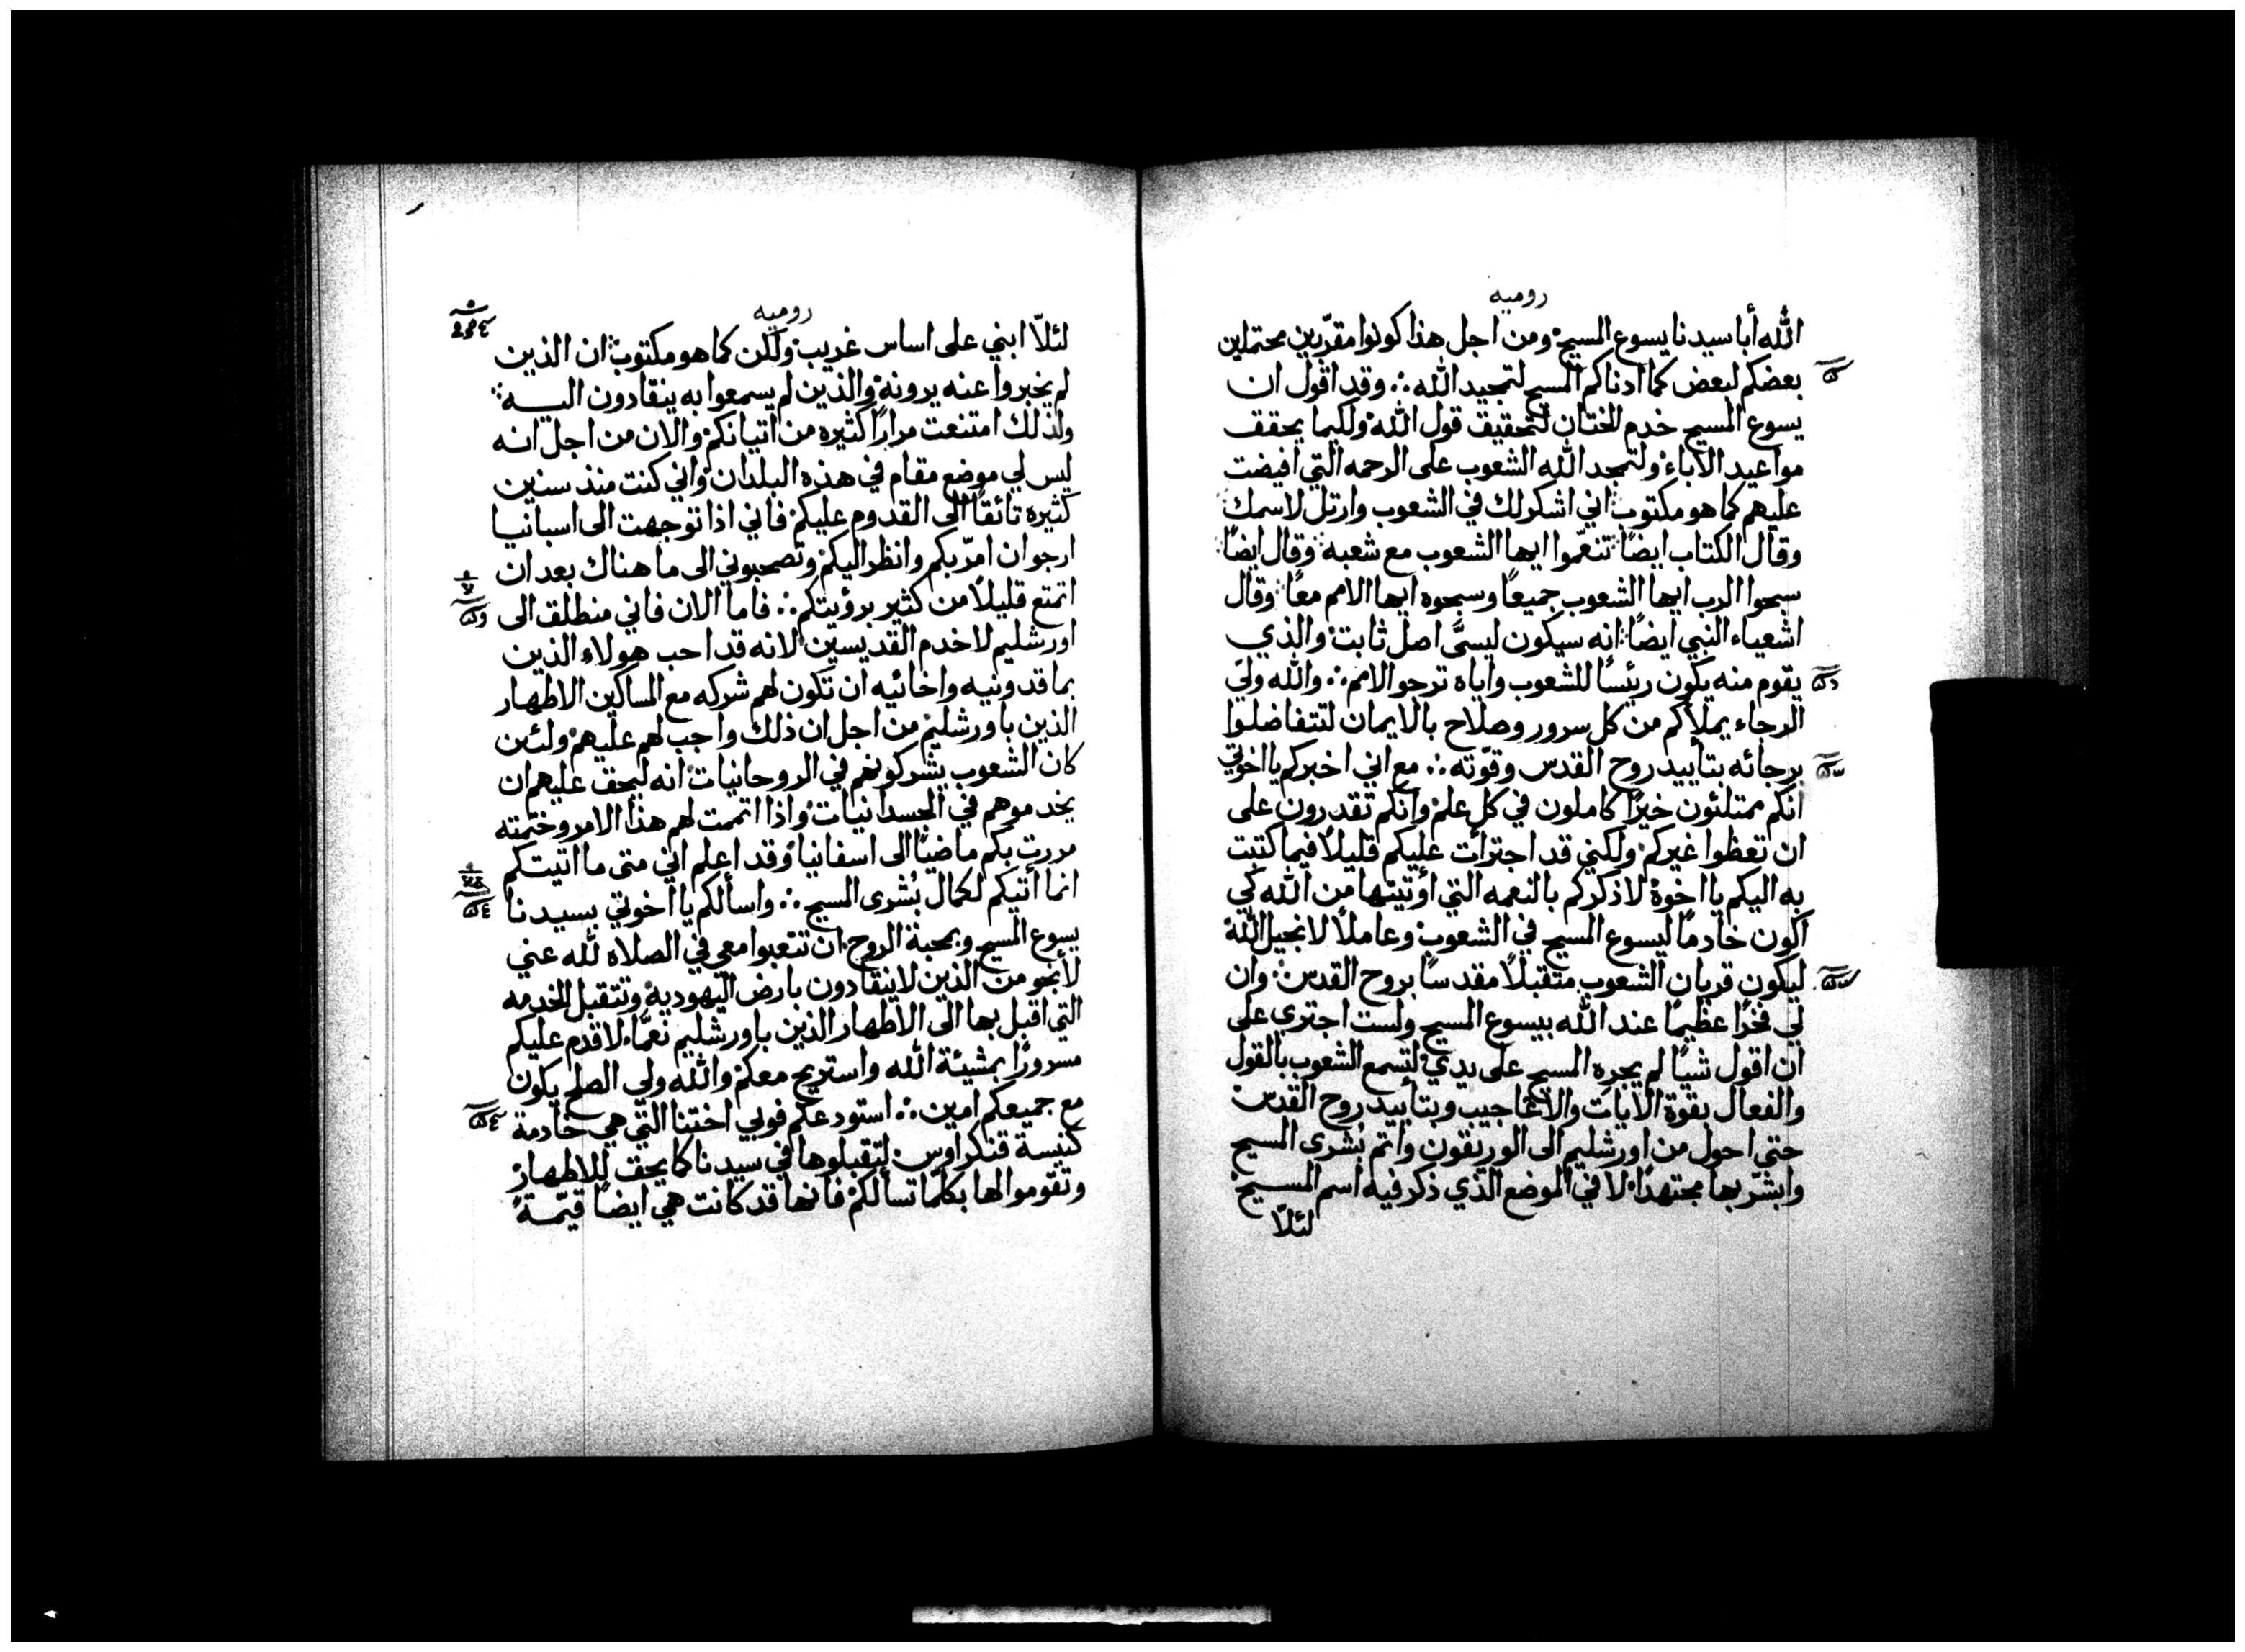 روميه
الله أبا سيدنا يسوع المسيح ومن اجل هذا كونوا مقرّبين محتملين
بعضكم لبعض كما ادناكم المسيح لتمجيد الله ∴ وقد اقول ان
يسوع المسيح خدم الختان لتحقيق قول الله ولكيما يحقق
مواعيد الاباء ولتمجد الله الشعوب على الرحمه التي افيضت
عليهم كما هو مكتوب اني اشكر لك في الشعوب وارتل لاسمك
وقال الكتاب ايضًا تنعّموا ايها الشعوب مع شعبه وقال ايضًا
سبحوا الرب ايها الشعوب جميعًا وسبحوه ايها الامم معًا وقال
اشعياء النبي ايضًا انه سيكون ليسَّى اصل ثابت والذي
يقوم منه يكون رئيسًا للشعوب واياه ترجو الامم ∴ والله وليّ
الرجاء يملأكم من كل سرور وصلاح بالايمان لتتفاضلوا
برجائه بتأييد روح القدس وقوّته ∴ مع اني اخبركم يا اخوتي
انكم ممتلئون خيرًا كاملون في كل علم وانكم تقدرون على
ان تعظوا غيركم ولكني قد اجترأت عليكم قليلًا فيما كتبت
به اليكم يا اخوة لاذكركم بالنعمه التي أوتيتها من الله كي
اكون خادمًا ليسوع المسيح في الشعوب وعاملًا لانجيل الله
ليكون قربان الشعوب متقبلًا مقدسًا بروح القدس وان
لي فخرًا عظيمًا عند الله بيسوع المسيح ولست اجتري على
ان اقول شيًا لم يجره المسيح على يدي لتسمع الشعوب بالقول
والفعال بقوة الايات والاعاجيب وبتأييد روح القدس
حتى احول من اورشليم الى الوريقون واتم بُشرى المسيح
وابشّر بها مجتهدًا لا في الموضع الذي ذكر فيه اسم المسيح
لئلّا
روميه
لئلّا ابني على اساس غريب ولكن كما هو مكتوب ان الذين
لم يخبروا عنه يرونه والذين لم يسمعوا به ينقادون اليه
ولذلك امتنعت مرارًا كثيره من اتيانكم والان من اجل انه
ليس لي موضع مقام في هذه البلدان واني كنت منذ سنين
كثيره تائقًا الى القدوم عليكم فاني اذا توجهت الى اسبانيا
ارجو ان امرّ بكم وانظر اليكم وتصحبوني الى ما هناك بعد ان
اتمتع قليلًا من كثير برؤيتكم ∴ فاما الان فاني منطلق الى
اورشليم لاخدم القديسين لانه قد احب هولاء الذين
بماقدونيه واخائيه ان تكون لهم شركه مع المساكين الاطهار
الذين باورشليم من اجل ان ذلك واجب لهم عليهم ولئن
كان الشعوب يشركونهم في الروحانيات انه ليحق عليهم ان
يخدموهم في الجسدانيات واذا اتممت لهم هذا الامر وختمته
مررت بكم ماضيًا الى اسفانيا وقد اعلم اني متى ما اتيتكم
انما أتيكم لكمال بُشرى المسيح ∴ واسألكم يا اخوتي بسيدنا
يسوع المسيح وبمحبة الروح ان تتعبوا معي في الصلاه لله عني
لأنجو من الذين لا ينقادون بارض اليهودية وتتقبل الخدمه
التي اقبل بها الى الاطهار الذين باورشليم نعمًا لاقدم عليكم
مسرورًا بمشيئة الله واستريح معكم والله ولي الصلح يكون
مع جميعكم امين ∴ استودعكم فوبي اختنا التي هي خادمة
كنيسة قنكراوس لتقبلوها في سيدنا كما يحق للاطهار
وتقوموا لها بكلما تسألكم فانها قد كانت هي ايضًا قيّمةً